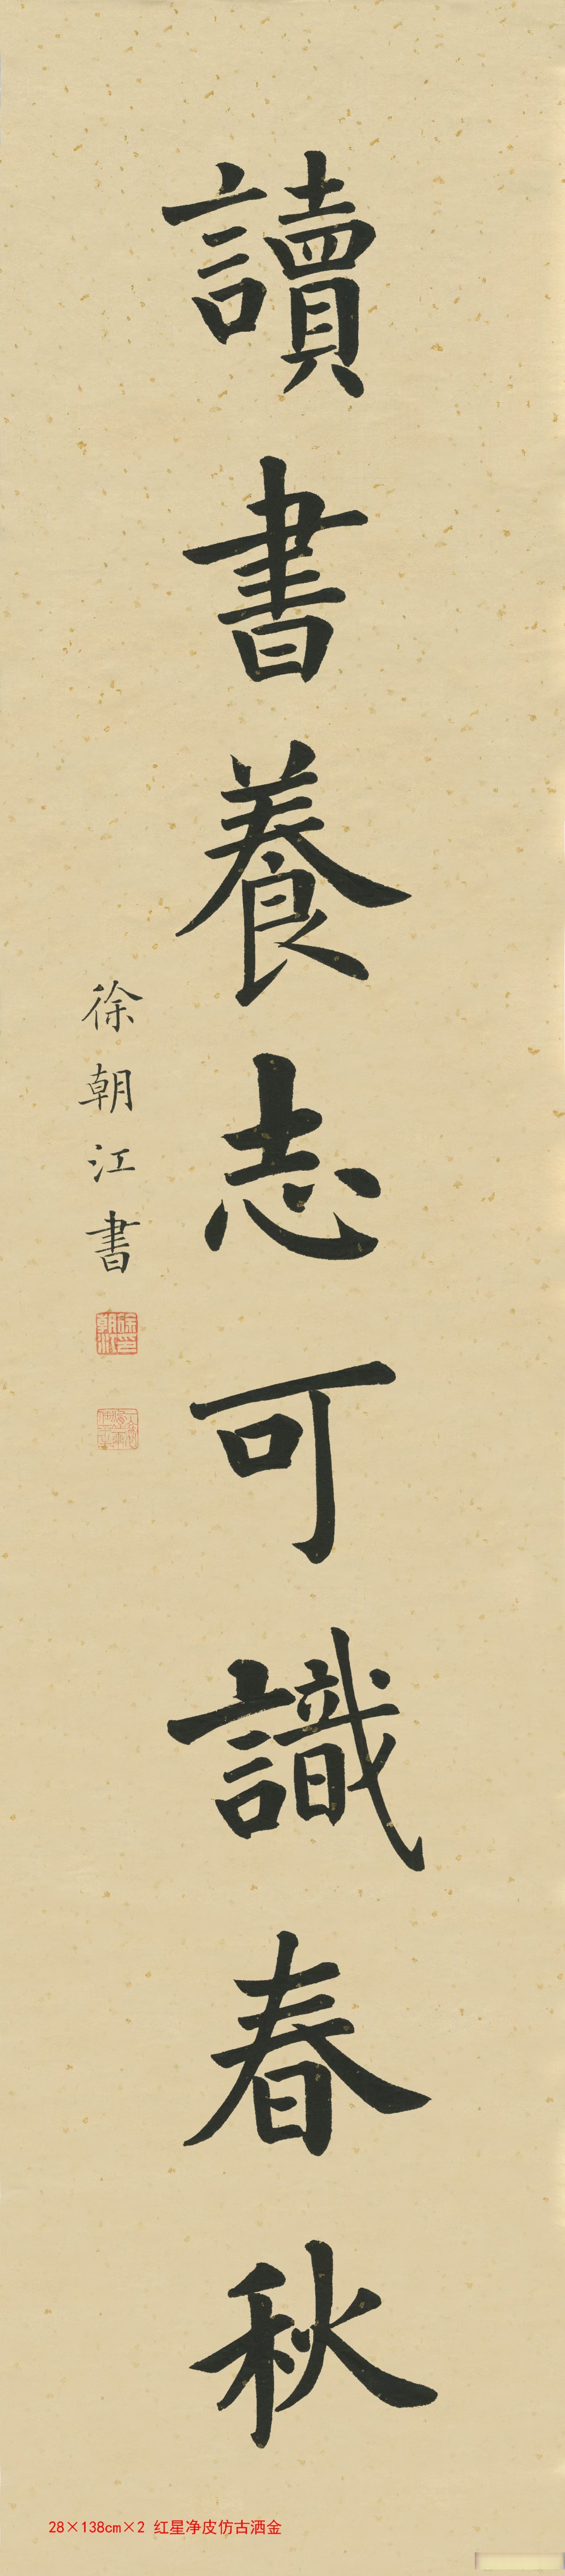 讀書養志可識春秋
徐朝江書
28×138cm×2 红星净皮仿古洒金